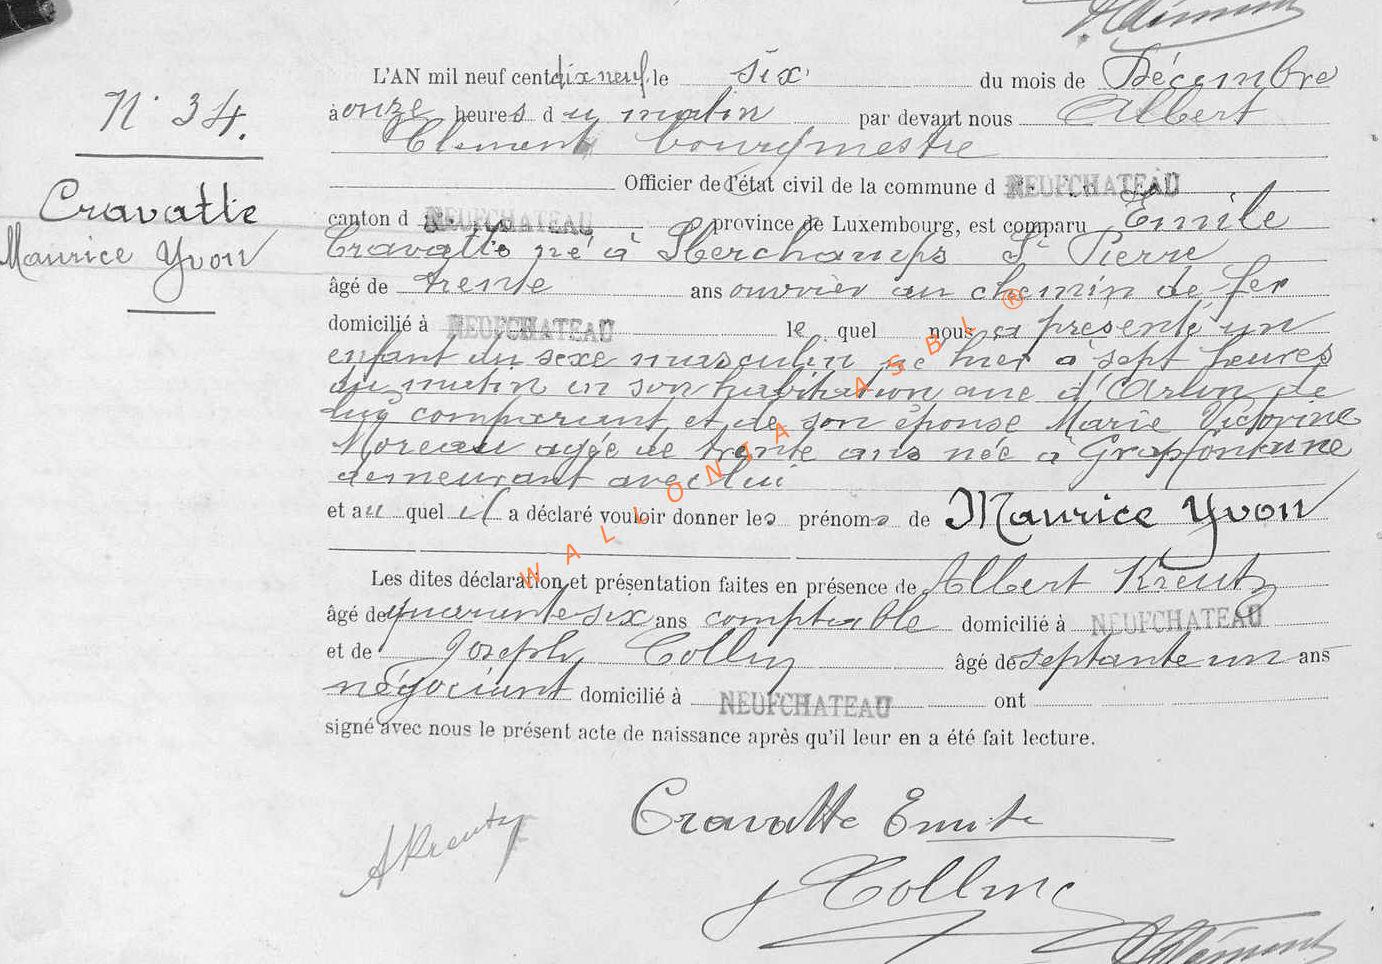 N° 34.
Cravatte
Maurice Yvon
L'AN mil neuf cent dix neuf, le six du mois de Décembre
à onze heures du matin par devant nous Albert
Clement bourgmestre
Officier de l'état civil de la commune d NEUFCHATEAU
canton d NEUFCHATEAU province de Luxembourg, est comparu Emile
Cravatte né à Sberchamps St Pierre
âgé de trente ans ouvrier au chemin de fer
domicilié à NEUFCHATEAU lequel nous a présenté un
enfant du sexe masculin né hier à sept heures
du matin en son habitation rue d'Arlon de
lui comparant et de son épouse Marie Victorine
Moreau agée de trente ans née à Grapfontaine
demeurant avec lui
et auquel il a déclaré vouloir donner les prénoms de Maurice Yvon
Les dites déclaration et présentation faites en présence de Albert Kreutz
âgé de quarante six ans comptable domicilié à NEUFCHATEAU
et de Joseph Collin âgé de septante un ans
négociant domicilié à NEUFCHATEAU ont
signé avec nous le présent acte de naissance après qu'il leur en a été fait lecture.
Cravatte Emile
AKreutz
J Collin
WALLONIA ASBL ®